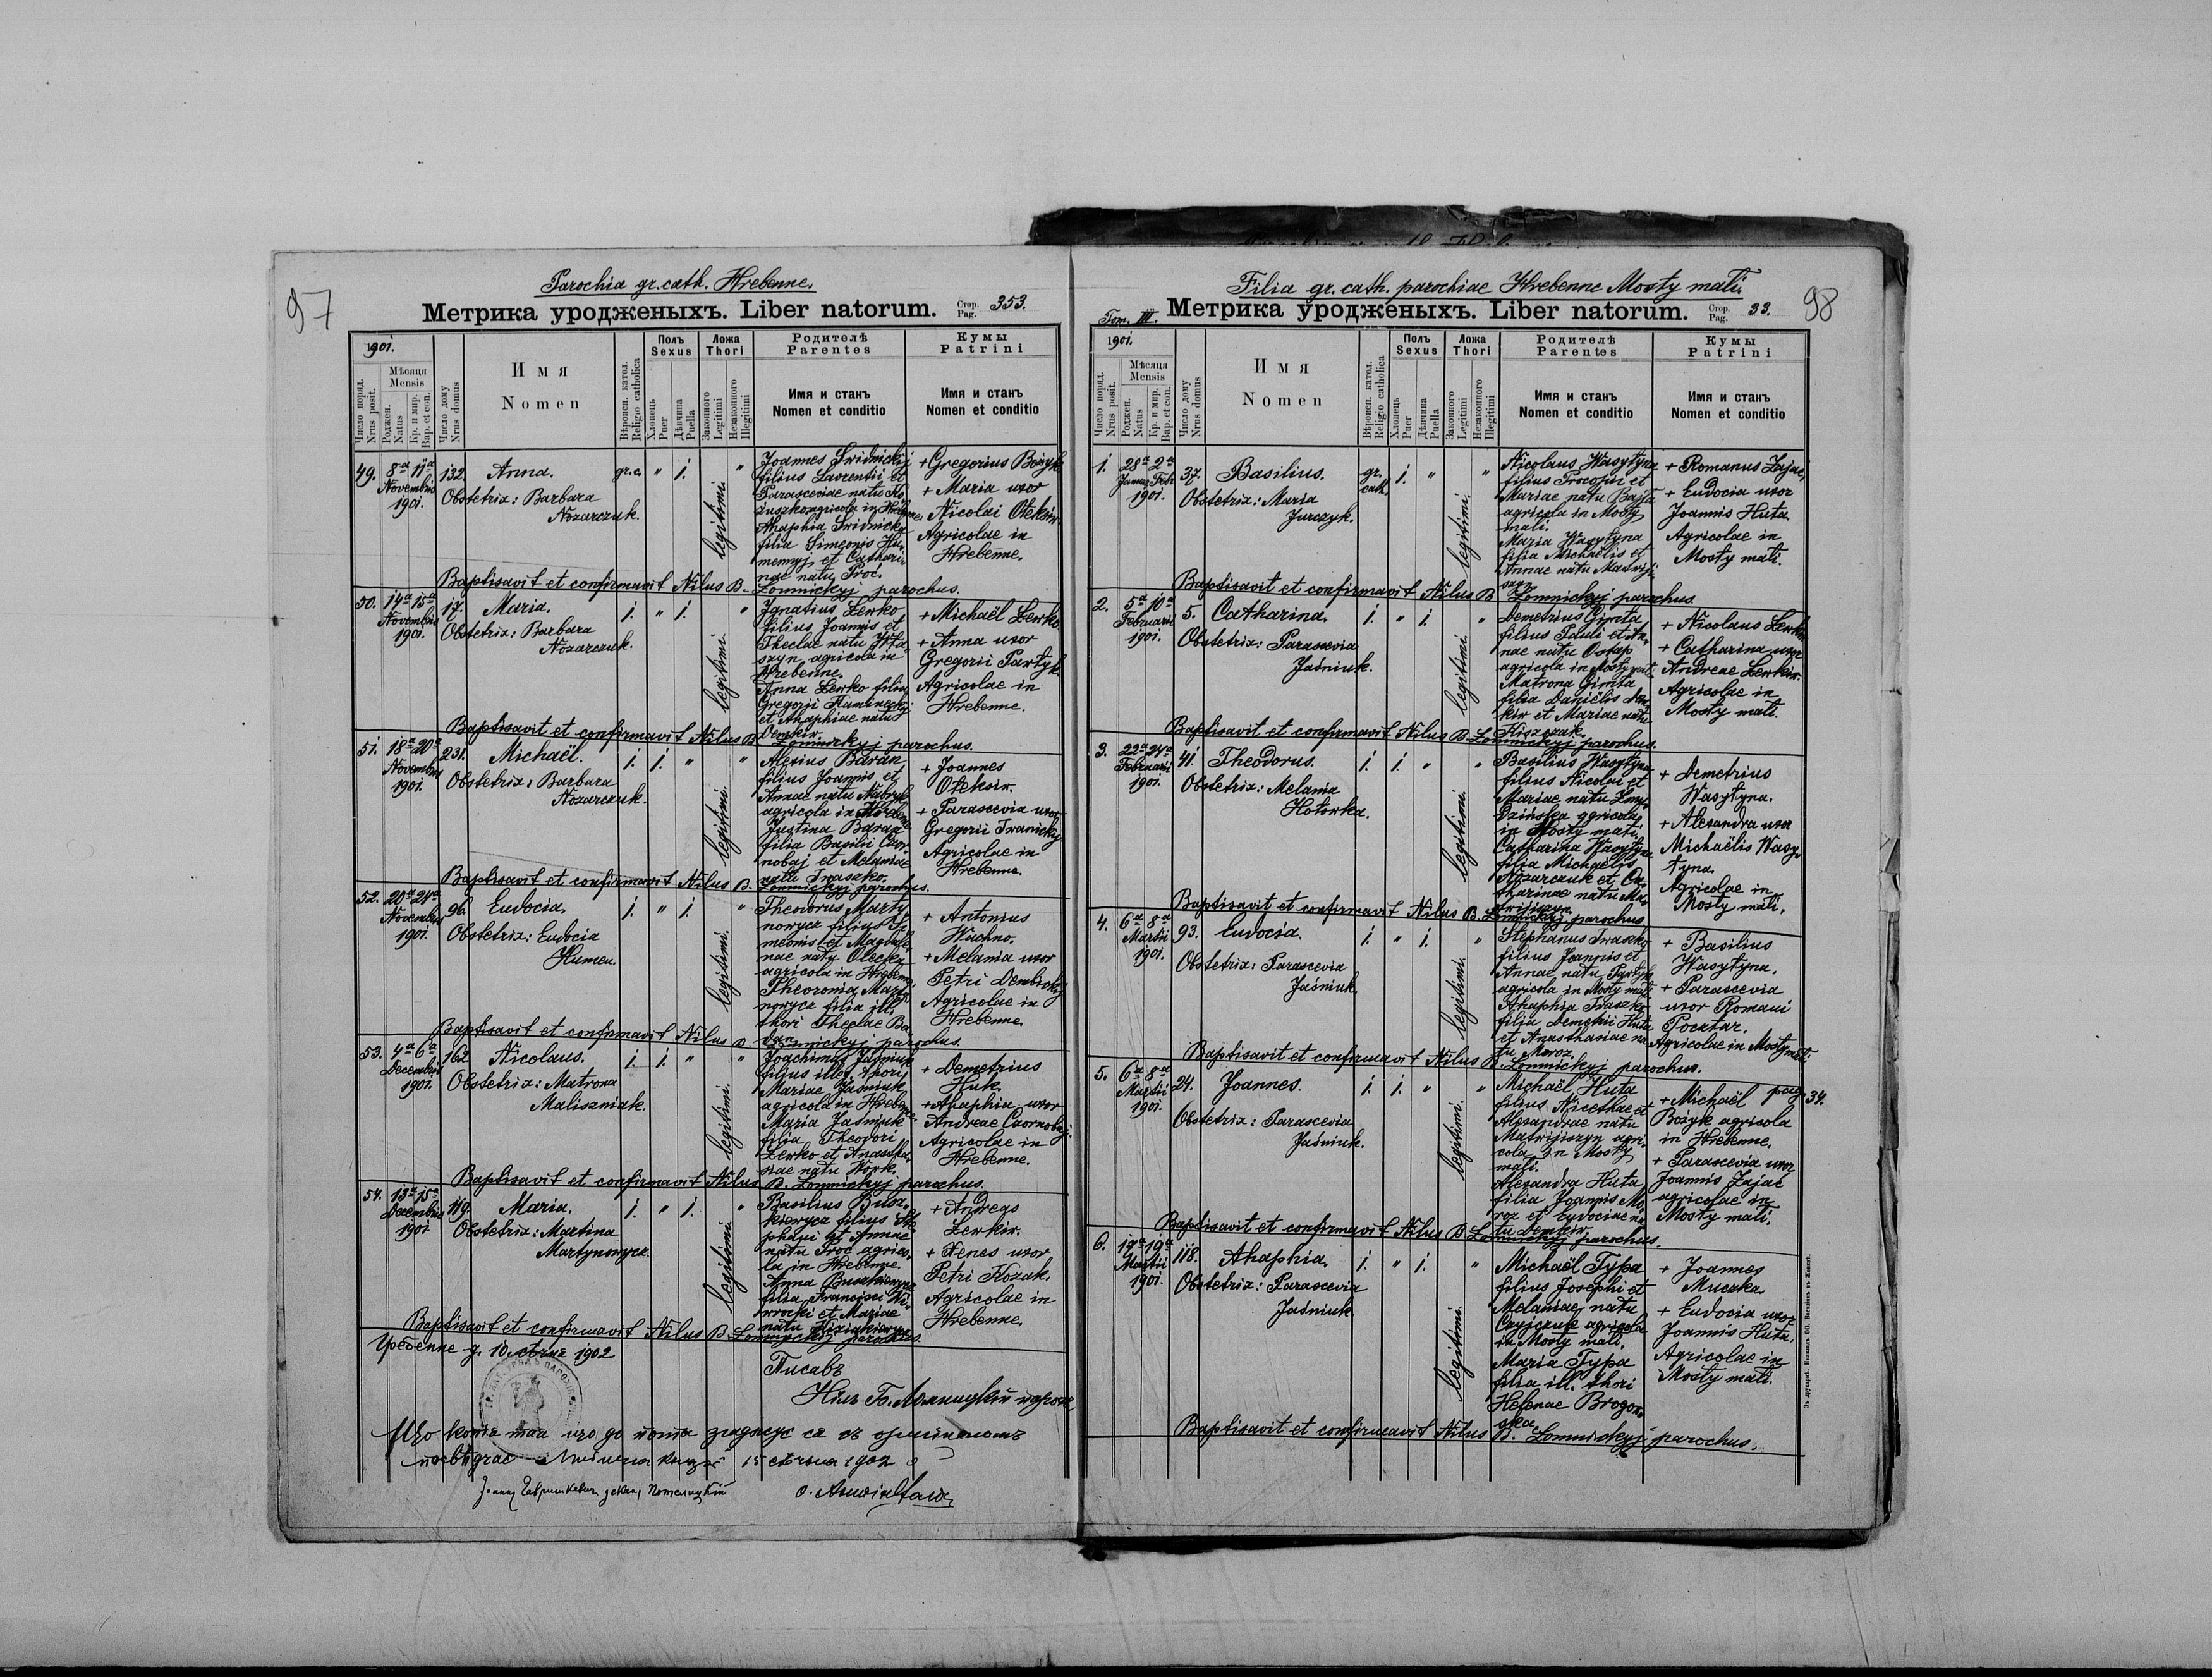 97
Parochia gr. cath. Hrebenne.
Метрика уродженыхъ. Liber natorum. Стор. Pag. 353.
1901.
Число поряд. Nrus posit.
Мѣсяця Mensis
Роджен. Natus
Кр. и мир. Bap. et con.
Число дому Nrus domus
Имя
Nomen
Вѣроисп. катол. Religio catholica
Полъ Sexus
Хлопець Puer
Дѣвчина Puella
Ложа Thori
Законного Legitimi
Незаконного Illegitimi
Родителѣ
Parentes
Имя и станъ
Nomen et conditio
Кумы
Patrini
Имя и станъ
Nomen et conditio
49. 8ª 11ª Novembris 1901. 132 Anna. gr.c. " 1. legitimi. "
Obstetrix: Barbara
Nozarczuk.
Joannes Swidnickij
filius Laurentii et
Parasceviae natu
agricola in
Ahaphia Swidnicka
filia Simeonis Hu-
mennyj et Cathari-
nae natu Proć.
+ Gregorius Bożyk
+ Maria uxor
Nicolai Oleksin.
Agricolae in
Hrebenne.
Baptisavit et confirmavit Nilus B. Lomnickyj parochus.
50. 14ª 15ª Novembris 1901. 17. Maria. 1. " 1. legitimi. "
Obstetrix: Barbara
Nozarczuk.
Ignatius Lewko
filius Joannis et
Theclae natu
agricola in
Hrebenne.
Anna Lewko filia
Gregorii
et Ahaphiae natu
+ Michaël Lewko
+ Anna uxor
Gregorii Partyk
Agricolae in
Hrebenne.
Baptisavit et confirmavit Nilus B. Lomnickyj parochus.
51. 18ª 20ª Novembris 1901. 231. Michaël. 1. 1. " legitimi. "
Obstetrix: Barbara
Nozarczuk.
Alexius Baran
filius Joannis et
Annae natu
agricola in Hrebenne
Justina Baran
filia Basilii Czor-
nobaj et Melaniae
natu Iwaszko.
+ Joannes
Oleksin.
+ Parascevia uxor
Gregorii Iwanickyj
Agricolae in
Hrebenne.
Baptisavit et confirmavit Nilus B. Lomnickyj parochus.
52. 20ª 24ª Novembris 1901. 96. Eudocia. 1. " 1. legitimi. "
Obstetrix: Eudocia
Humen.
Theodorus Marty-
nowycz filius Si-
meonis et Magdale-
nae natu
agricola in Hrebenne.
filia ill.
thori Theclae Ba-
ran.
+ Antonius
Wachno.
+ Melania uxor
Petri Dembickij
Agricolae in
Hrebenne.
Baptisavit et confirmavit Nilus B. Lomnickyj parochus.
53. 4ª 6ª Decembris 1901. 162 Nicolaus. 1. 1. " legitimi. "
Obstetrix: Matrona
Maliszniak.
Joachimus Jaśniuk
filius ill. thori
Mariae Jaśniuk
agricola in Hreben-
Maria Jaśniuk
filia Theodori
Lewko et Anastha-
siae natu Work.
+ Demetrius
Huk.
+ Ahaphia uxor
Andreae Czornobaj.
Agricolae in
Hrebenne.
Baptisavit et confirmavit Nilus B. Lomnickyj parochus.
54. 13ª 15ª Decembris 1901 119. Maria. 1. " 1. legitimi. "
Obstetrix: Martina
Martynowycz.
Basilius Busz-
kiewycz filius Ste-
phani et Annae
natu Proć agrico-
la in Hrebenne.
Anna Buszkiewycz
filia Francisci
et Mariae
natu
+ Andreas
Lewkiw.
+ Xenes uxor
Petri Kozak.
Agricolae in
Hrebenne.
Baptisavit et confirmavit Nilus B. Lomnickyj parochus.
Гребенне д. 10 січня 1902
Писавъ
Нилъ Б. Ломницкій парохъ
15 січня 1902
98
Filia gr. cath. parochiae Hrebenne Mosty mali.
Tom. III. Метрика уродженыхъ. Liber natorum. Стор. Pag. 33.
1901.
Число поряд. Nrus posit.
Мѣсяця Mensis
Роджен. Natus
Кр. и мир. Bap. et con.
Число дому Nrus domus
Имя
Nomen
Вѣроисп. катол. Religio catholica
Полъ Sexus
Хлопець Puer
Дѣвчина Puella
Ложа Thori
Законного Legitimi
Незаконного Illegitimi
Родителѣ
Parentes
Имя и станъ
Nomen et conditio
Кумы
Patrini
Имя и станъ
Nomen et conditio
1. 28ª 2ª Januar. Febr. 1901. 37. Basilius. gr. cath. 1. " legitimi. "
Obstetrix: Maria
Jurczyk.
Nicolaus Wasylyna
filius Procopii et
Mariae natu Bajla
agricola in Mosty
mali.
Maria Wasylyna
filia Michaëlis et
Annae natu Matwiji-
szyn.
+ Romanus Zajac,
+ Eudocia uxor
Joannis Huta.
Agricolae in
Mosty mali.
Baptisavit et confirmavit Nilus B. Lomnickyj parochus.
2. 5ª 10ª Februarii 1901. 5. Catharina. 1. " 1. legitimi. "
Obstetrix: Parascevia
Jaśniuk.
Demetrius Gimta
filius Pauli et An-
nae natu Ostap
agricola in Mosty mali
Matrona Gimta
filia Daniëlis
et Mariae natu
Kiszczak.
+ Nicolaus
+ Catharina uxor
Andreae Lewkiw.
Agricolae in
Mosty mali.
Baptisavit et confirmavit Nilus B. Lomnickyj parochus.
3. 22ª 24ª Februarii 1901. 41. Theodorus. 1. 1. " legitimi. "
Obstetrix: Melania
Hotorka.
Basilius Wasylyna
filius Nicolai et
Mariae natu
agricola
in Mosty mali.
Catharina Wasylyna
filia Michaëlis
Nozarczuk et Ca-
tharinae natu Ma-
twijiszyn.
+ Demetrius
Wasylyna.
+ Alexandra uxor
Michaëlis Wasy-
lyna.
Agricolae in
Mosty mali.
Baptisavit et confirmavit Nilus B. Lomnickyj parochus.
4. 6ª 8ª Martii 1901. 93. Eudocia. 1. " 1. legitimi. "
Obstetrix: Parascevia
Jaśniuk.
Stephanus Iwaszko
filius Joannis et
Annae natu Partyka
agricola in Mosty mali
Ahaphia Iwaszko
filia Demetrii Huta
et Anasthasiae na-
tu Moroz.
+ Basilius
Wasylyna.
+ Parascevia
uxor Romani
Pocztar.
Agricolae in Mosty mali.
Baptisavit et confirmavit Nilus B. Lomnickyj parochus.
5. 6ª 8ª Martii 1901. 24. Joannes. 1. 1. " legitimi. "
Obstetrix: Parascevia
Jaśniuk.
Michaël Huta
filius Nicethae et
Alexandrae natu
Matwijiszyn agri-
cola in Mosty
mali.
Alexandra Huta
filia Joannis Mo-
roz et Eudociae na-
tu Lewkiw.
+ Michaël pag. 34.
Bożyk agricola
in Hrebenne.
+ Parascevia uxor
Joannis Zajac
agricolae in
Mosty mali.
Baptisavit et confirmavit Nilus B. Lomnickyj parochus.
6. 17ª 19ª Martii 1901. 118. Ahaphia. 1. " 1. legitimi. "
Obstetrix: Parascevia
Jaśniuk
Michaël Typa
filius Josephi et
Melaniae natu
agricola
in Mosty mali.
Maria Typa
filia ill. thori
Helenae Brogow-
ska.
+ Joannes
Muczka
+ Eudocia uxor
Joannis Huta.
Agricolae in
Mosty mali.
Baptisavit et confirmavit Nilus B. Lomnickyj parochus.